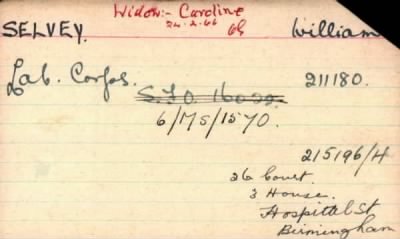 Widow:- Caroline
24.2.66
SELVEY. William
Lab. Corps. 211180.
S.F.O. 16022.
6/MS/1570.
215196/H
26 Court.
3 House.
Hospital St
Birmingham